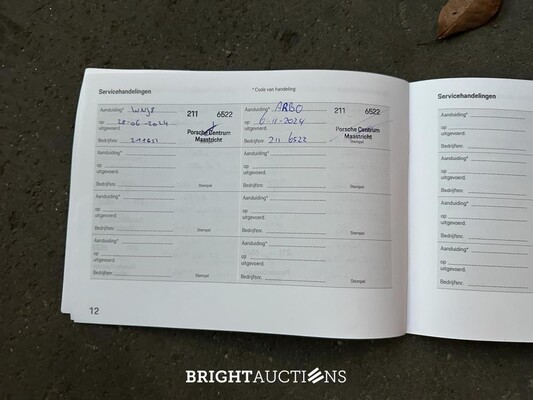 Servicehandelingen
* Code van handeling
Aanduiding* WNJ8
211 6522
op 28-06-2024
uitgevoerd.
Porsche Centrum
Maastricht
Bedrijfsnr.
Stempel
Aanduiding* ARBO
211 6522
op 6-11-2024
uitgevoerd.
Porsche Centrum
Maastricht
Bedrijfsnr. 211 6522
Stempel
Aanduiding*
op
uitgevoerd.
Bedrijfsnr.
Stempel
Aanduiding*
op
uitgevoerd.
Bedrijfsnr.
Stempel
Aanduiding*
op
uitgevoerd.
Bedrijfsnr.
Stempel
Aanduiding*
op
uitgevoerd.
Bedrijfsnr.
Stempel
Aanduiding*
op
uitgevoerd.
Bedrijfsnr.
Stempel
Aanduiding*
op
uitgevoerd.
Bedrijfsnr.
Stempel
12
Servicehandelingen
Aanduiding*
op
uitgevoerd.
Bedrijfsnr.
Aanduiding*
op
uitgevoerd.
Bedrijfsnr.
Aanduiding*
op
uitgevoerd.
Bedrijfsnr.
Aanduiding*
op
uitgevoerd.
Bedrijfsnr.
BRIGHTAUCTIONS